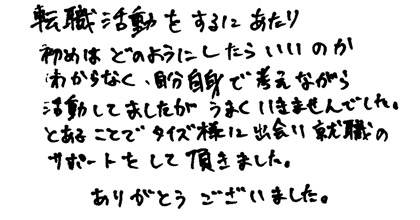 転職活動をするにあたり
初めはどのようにしたらいいのか
わからなく、自分自身で考えながら
活動してましたがうまくいきませんでした。
とあることでタイズ様に出会い就職の
サポートをして頂きました。
ありがとうございました。